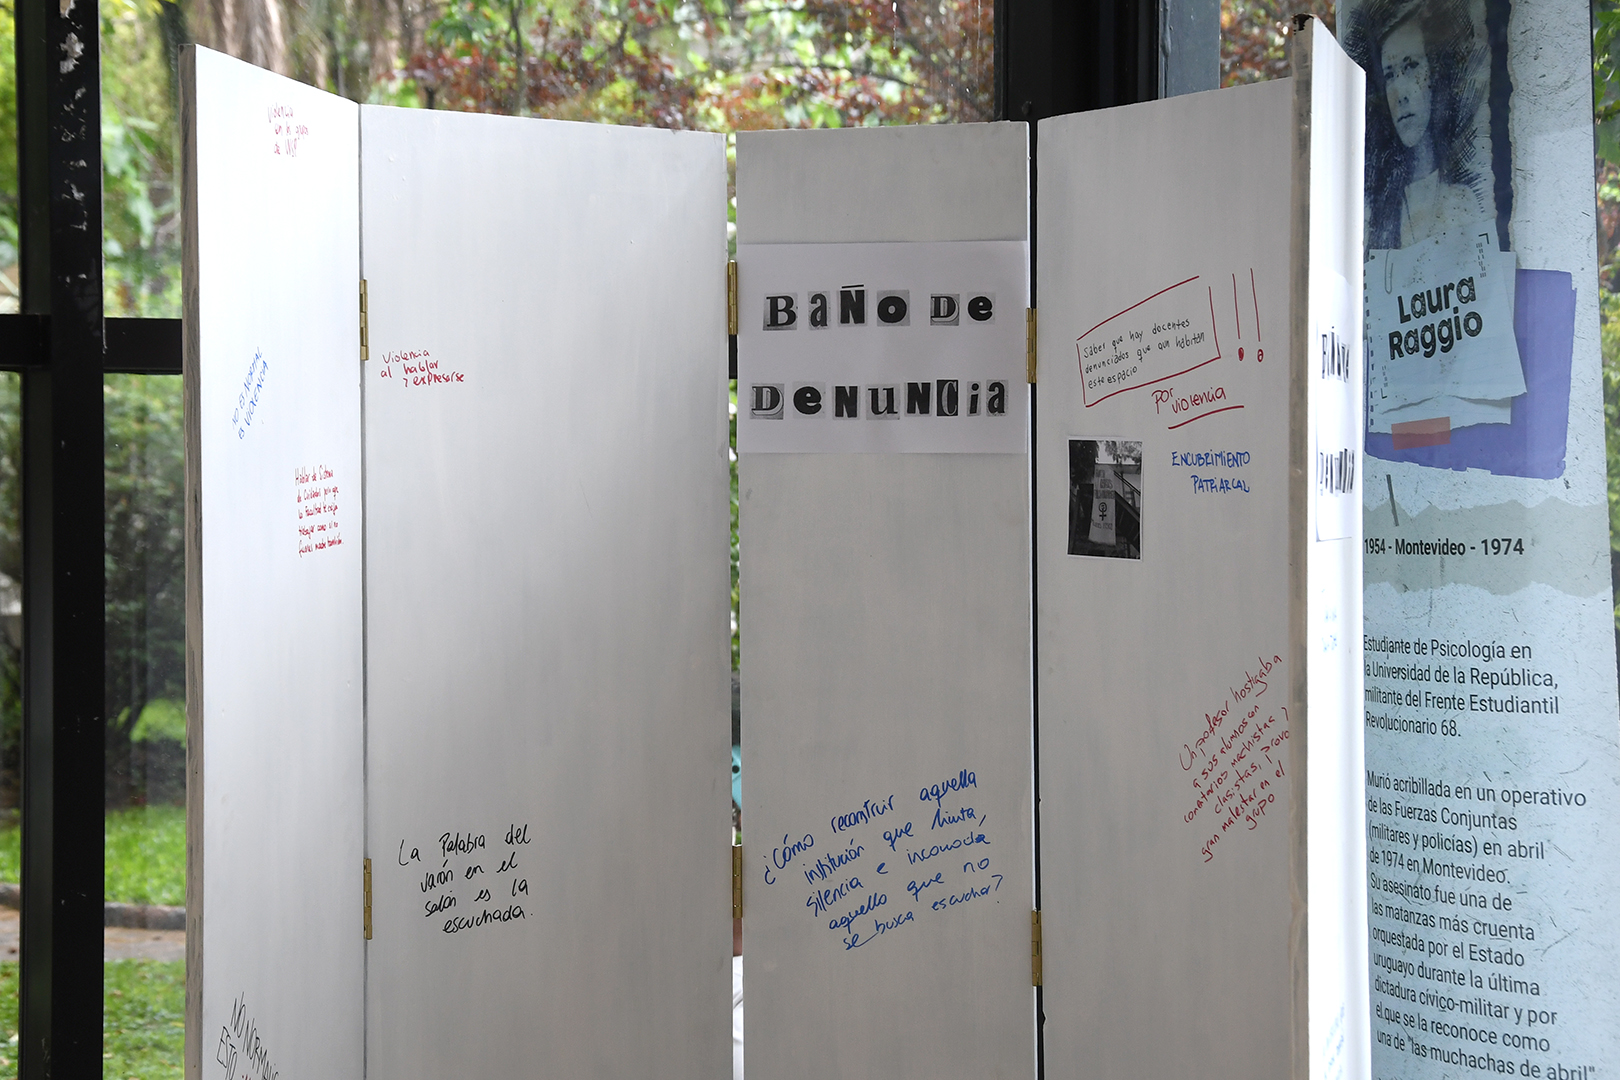 Violencia
en
de
NO ES NORMAL
ES VIOLENCIA
Hablar de Sistema
de Cuidados para que
la Facultad te exija
trabajar como si no
fueras madre también.
NO NORMAL
ESTO
Violencia
al hablar
y expresarse
La Palabra del
varón en el
salón es la
escuchada.
BAÑO DE
DENUNCIA
¿Cómo reconstruir aquella
institución que
silencia e
aquello que no
se busca escuchar?
Saber que hay docentes
denunciados que aun habitan
este espacio
!!
por violencia
ENCUBRIMIENTO
PATRIARCAL
Un profesor hostigaba
a sus alumnos con
comentarios machistas y
clasistas, provocó
gran malestar en el
grupo
Laura
Raggio
1954 - Montevideo - 1974
Estudiante de Psicología en
la Universidad de la República,
militante del Frente Estudiantil
Revolucionario 68.
Murió acribillada en un operativo
de las Fuerzas Conjuntas
(militares y policías) en abril
de 1974 en Montevideo.
Su asesinato fue una de
las matanzas más cruenta
orquestada por el Estado
uruguayo durante la última
dictadura cívico-militar y por
el que se la reconoce como
una de "las muchachas de abril"